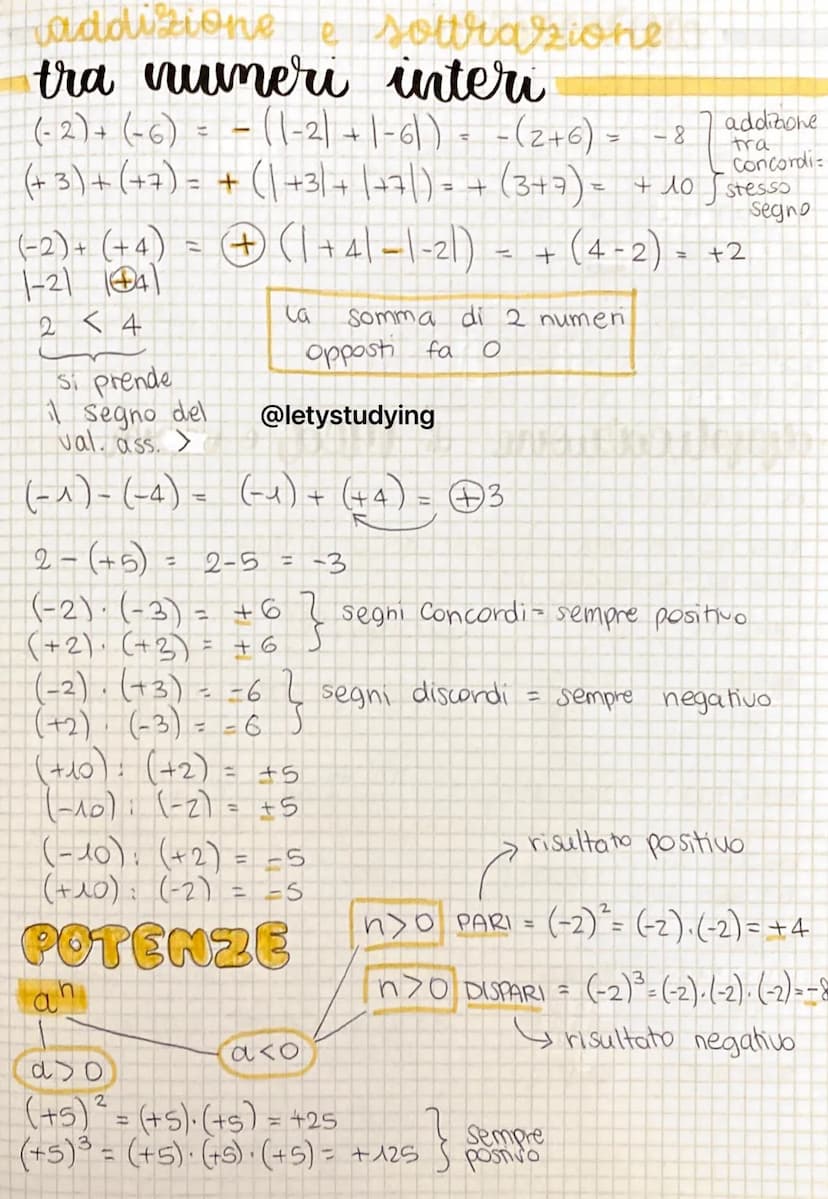 addizione e sottrazione
tra numeri interi
(-2)+ (-6) = - (|-2| + |-6|) = -(2+6) = -8
(+3)+(+7) = + (|+3|+ |+7|) = + (3+7) = +10
addizione
tra
concordi =
stesso
segno
(-2)+ (+4) = + (|+4|-|-2|) = + (4-2) = +2
|-2| |+4|
2 < 4
si prende
il segno del
val. ass. >
la somma di 2 numeri
opposti fa 0
@letystudying
(-1)-(-4) = (-1) + (+4) = +3
2-(+5) = 2-5 = -3
(-2)·(-3) = +6
(+2)·(+3) = +6
segni concordi = sempre positivo
(-2)·(+3) = -6
(+2)·(-3) = -6
segni discordi = sempre negativo
(+10):(+2) = +5
(-10):(-2) = +5
(-10):(+2) = -5
(+10):(-2) = -5
risultato positivo
POTENZE
n>0 PARI = (-2)²= (-2)·(-2)= +4
aⁿ
n>0 DISPARI = (-2)³=(-2)·(-2)·(-2)=-8
risultato negativo
a>0
a<0
(+5)² = (+5)·(+5) = +25
(+5)³ = (+5)·(+5)·(+5) = +125
sempre
positivo